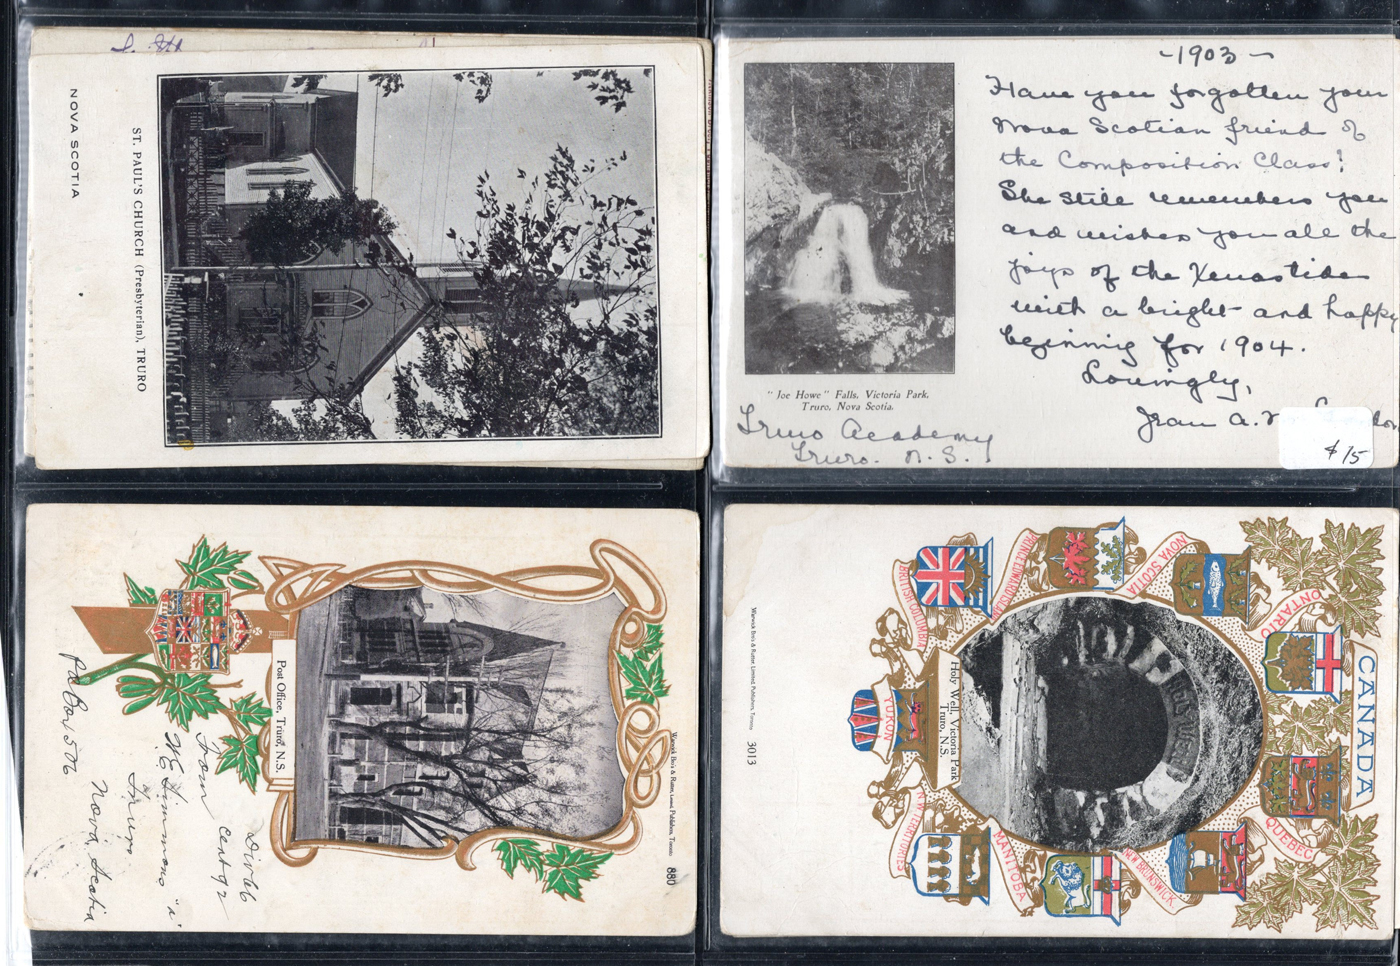 NOVA SCOTIA
ST. PAUL'S CHURCH (Presbyterian), TRURO
-1903-
Have you forgotten your
Nova Scotian friend of
the Composition Class?
She still remembers you
and wishes you all the
joys of the Xmastide
with a bright and happy
beginning for 1904.
Lovingly,
Jean A.
$15
"Joe Howe" Falls, Victoria Park,
Truro, Nova Scotia.
Truro Academy
Truro. N. S.
Warwick Bro's & Rutter, Limited, Publishers, Toronto 880
Post Office, Truro, N.S.
From
W E Simmons
Truro
Nova Scotia
CANADA
ONTARIO
QUEBEC
NOVA SCOTIA
NEW BRUNSWICK
PRINCE EDWARD ISLAND
MANITOBA
BRITISH COLUMBIA
N.W. TERRITORIES
YUKON
Holy Well, Victoria Park
Truro, N.S.
Warwick Bro's & Rutter, Limited, Publishers, Toronto 3013